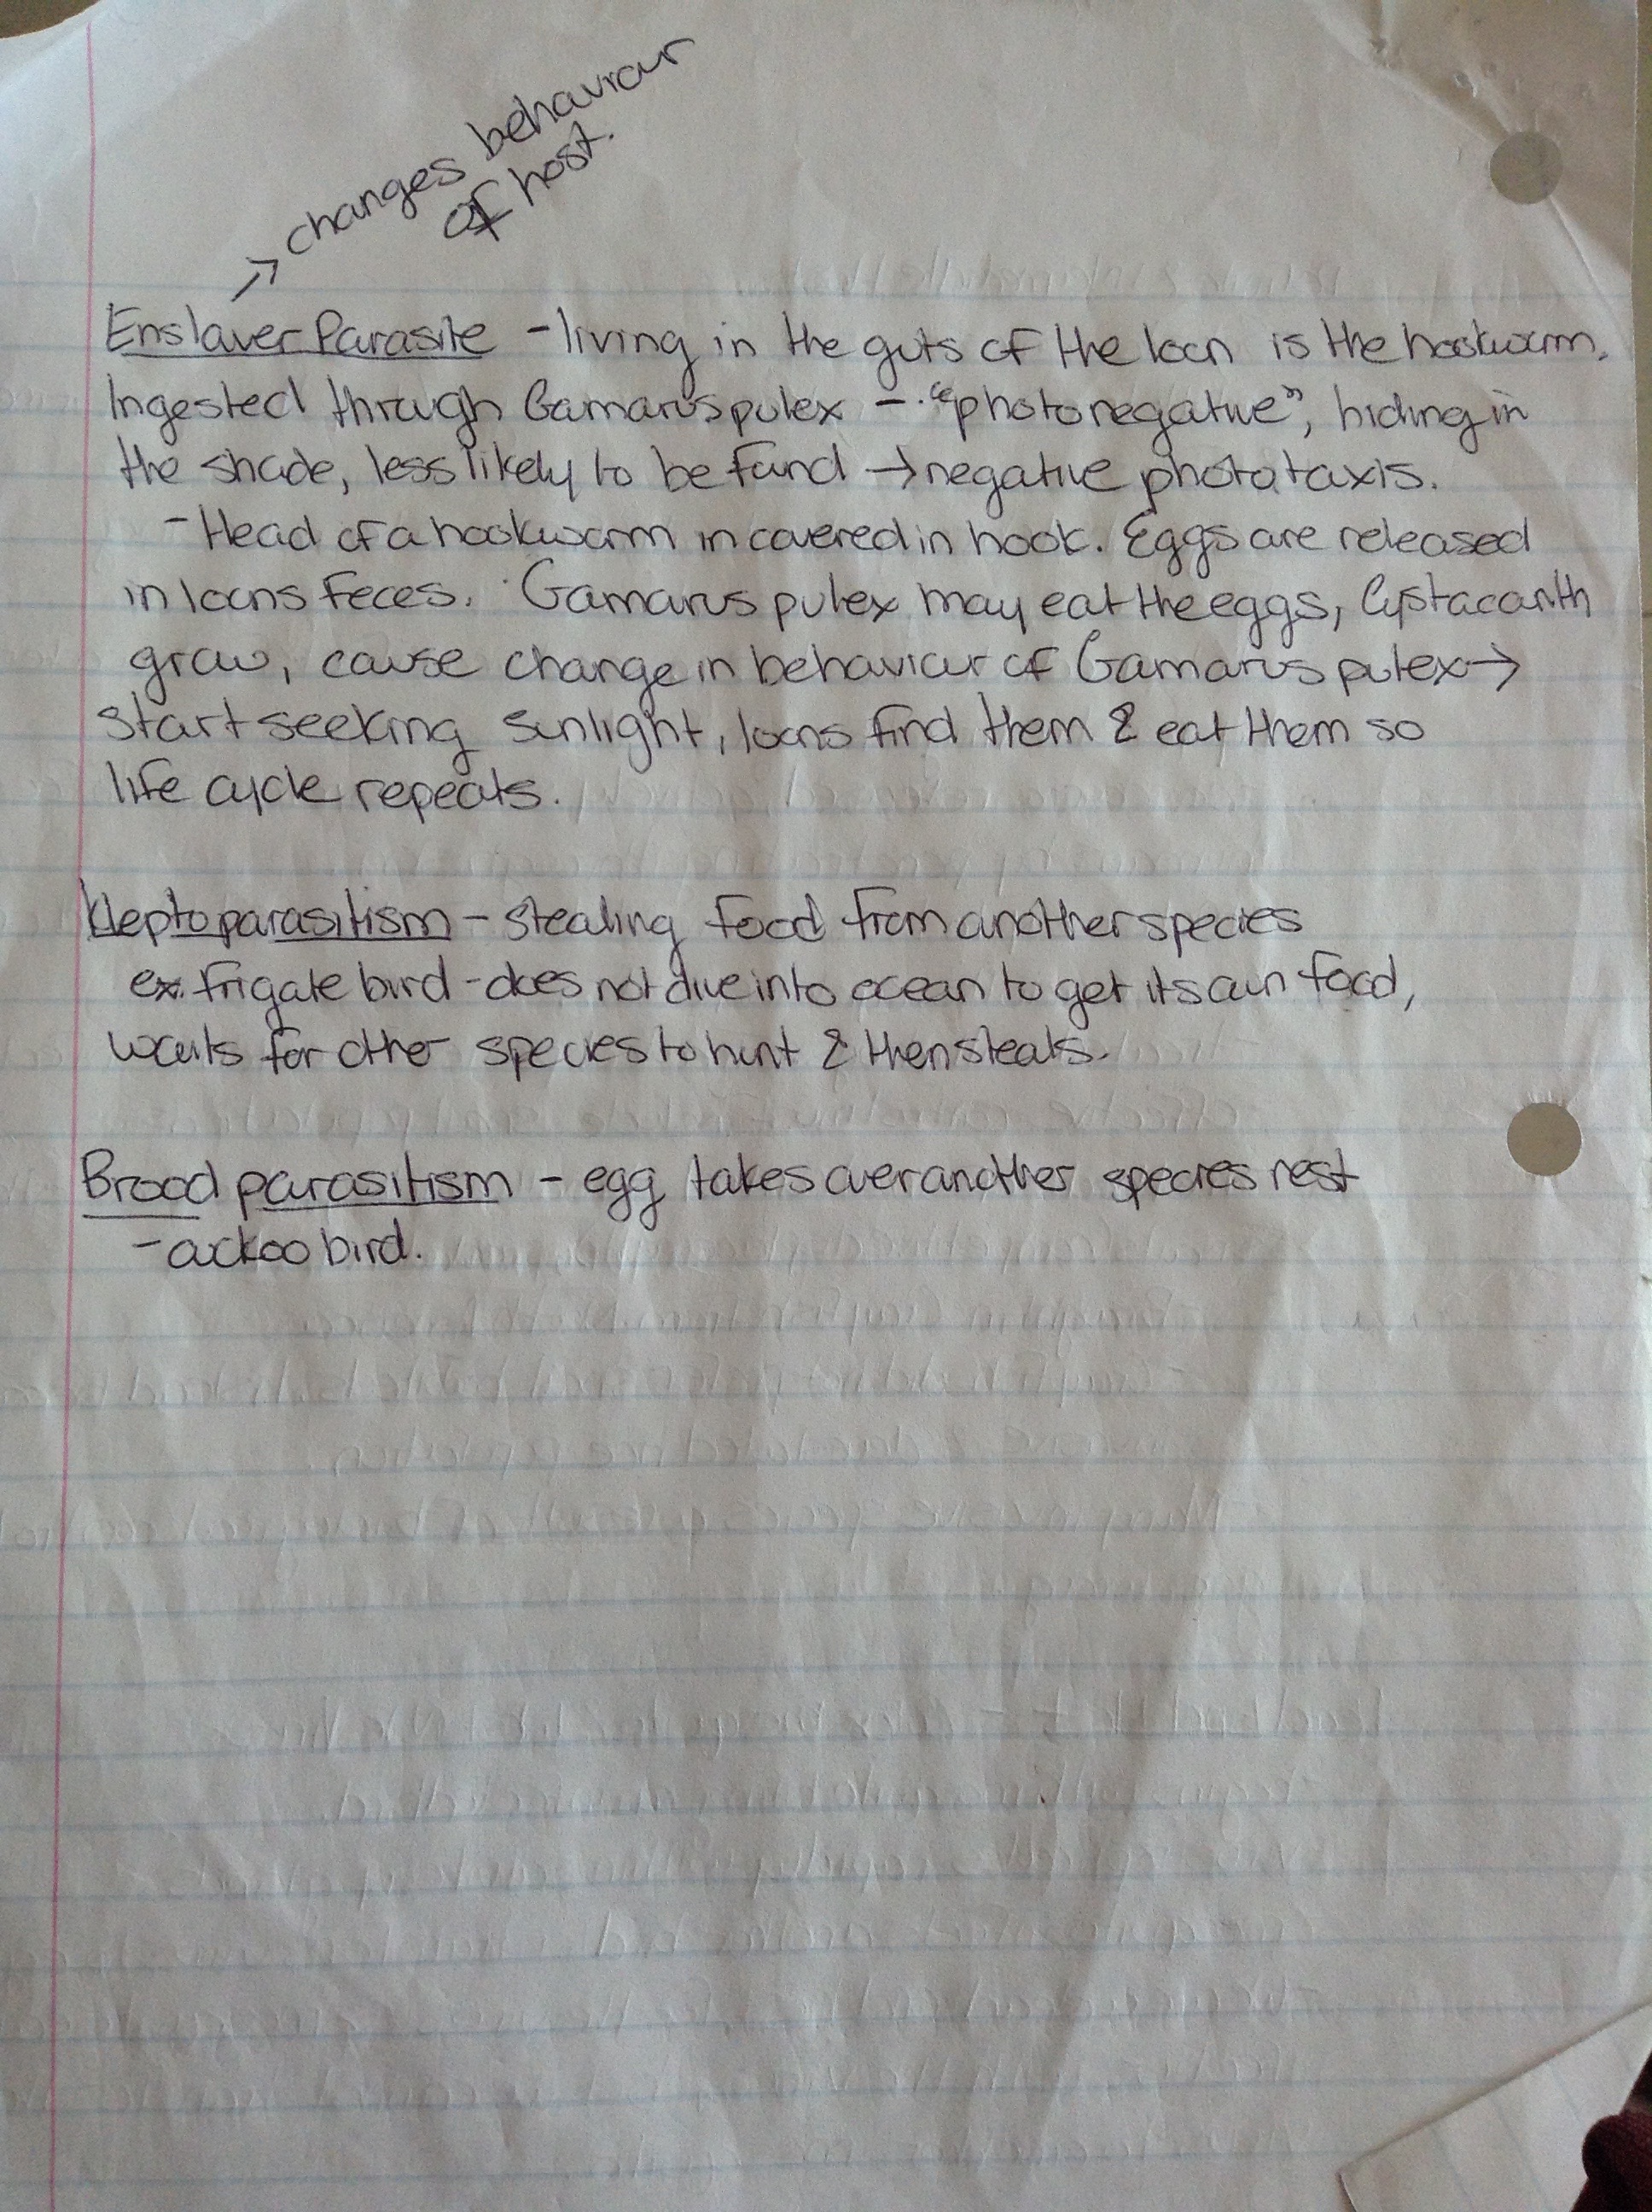 → changes behaviour
of host.
Enslaver Parasite - living in the guts of the loon is the hookworm.
Ingested through Gamarus pulex - "photonegative", hiding in
the shade, less likely to be found → negative phototaxis.
- Head of a hookworm in covered in hook. Eggs are released
in loons feces. Gamarus pulex may eat the eggs, Cystacanth
grow, cause change in behaviour of Gamarus pulex →
start seeking sunlight, loons find them & eat them so
life cycle repeats.
Kleptoparasitism - stealing food from another species
ex. frigate bird - does not dive into ocean to get its own food,
waits for other species to hunt & then steals.
Brood parasitism - egg takes over another species nest
- cuckoo bird.